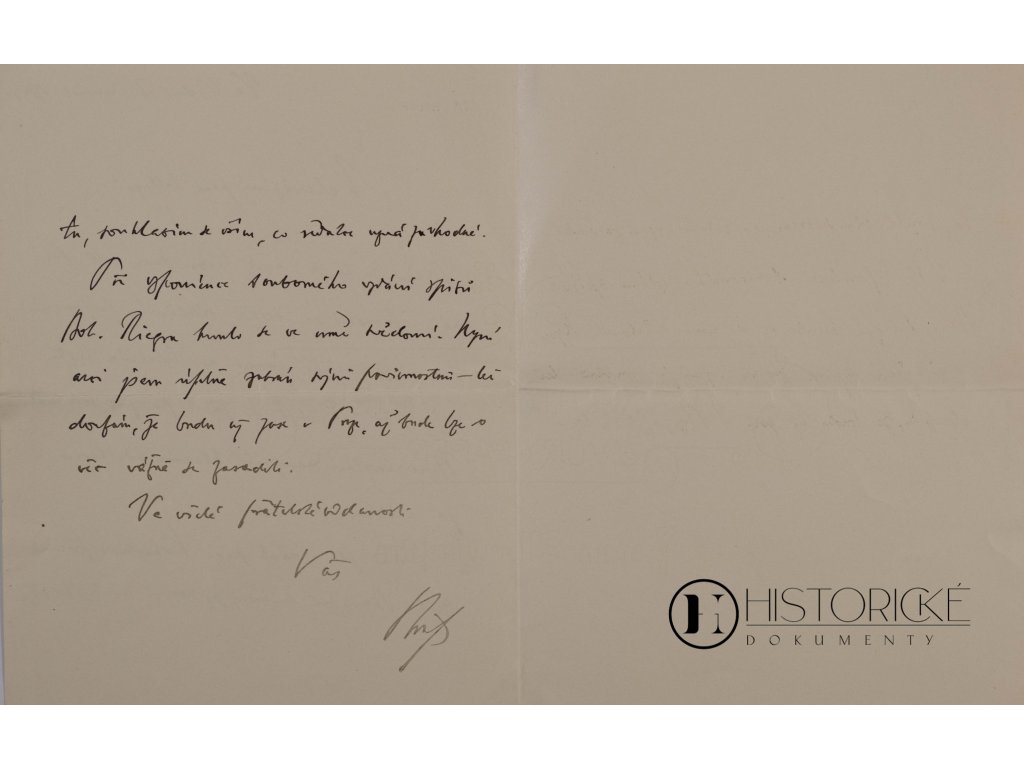 tu, souhlasím se vším, co redakce uzná za vhodné.
Při vzpomínce souborného vydání spisů
Boh. Riegra hnulo se ve mně svědomí. Nyní
arci jsem úplně zabrán svými povinnostmi – leč
doufám, že budu už zase v Praze, až bude lze o
věc vážně se zasaditi.
Ve vší přátelské oddanosti
Váš
HISTORICKÉ
DOKUMENTY